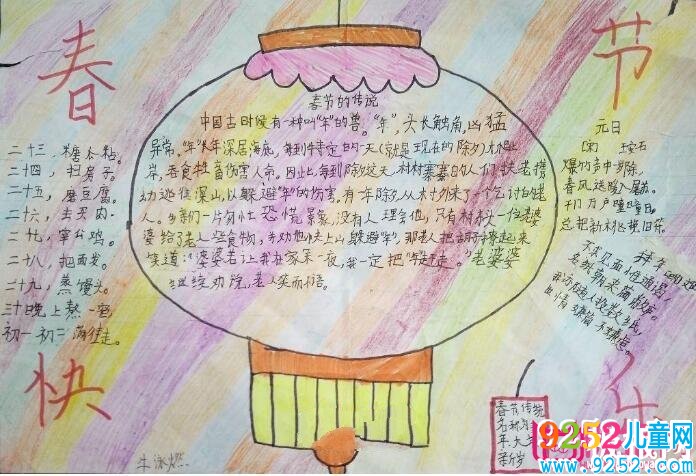 春
节
快
春节的传说
中国古时候有一种叫"年"的兽。"年",头长触角,凶猛
异常。"年"长年深居海底,每到特定的一天(就是现在的除夕)才爬上
岸,吞食牲畜伤害人命。因此,每到除夕这天,村村寨寨的人们扶老携
幼逃往深山,以躲避"年"的伤害。有一年除夕,从村外来了个乞讨的老
人。乡亲们一片匆忙恐慌景象,没有人理会他,只有村头一位老婆
婆给了老人些食物,并劝他快上山躲避"年",那老人把胡子撩起来
笑道:"婆婆若让我在家呆一夜,我一定把"年"赶走。"老婆婆
继续劝说,老人笑而不语。
二十三,糖瓜粘。
二十四,扫房子。
二十五,磨豆腐。
二十六,去买肉。
二十七,宰公鸡。
二十八,把面发。
二十九,蒸馒头。
三十晚上熬一宿。
初一初二满街走。
元日
王安石
爆竹声中一岁除,
春风送暖入屠苏。
千门万户曈曈日,
总把新桃换旧符。
拜年
不求见面惟通谒,
名纸朝来满敝庐。
我亦随人投数纸,
世情嫌简不嫌虚。
春节传统
名称为
年大年
新岁
牛泳燃
9252儿童网
www.9252.com